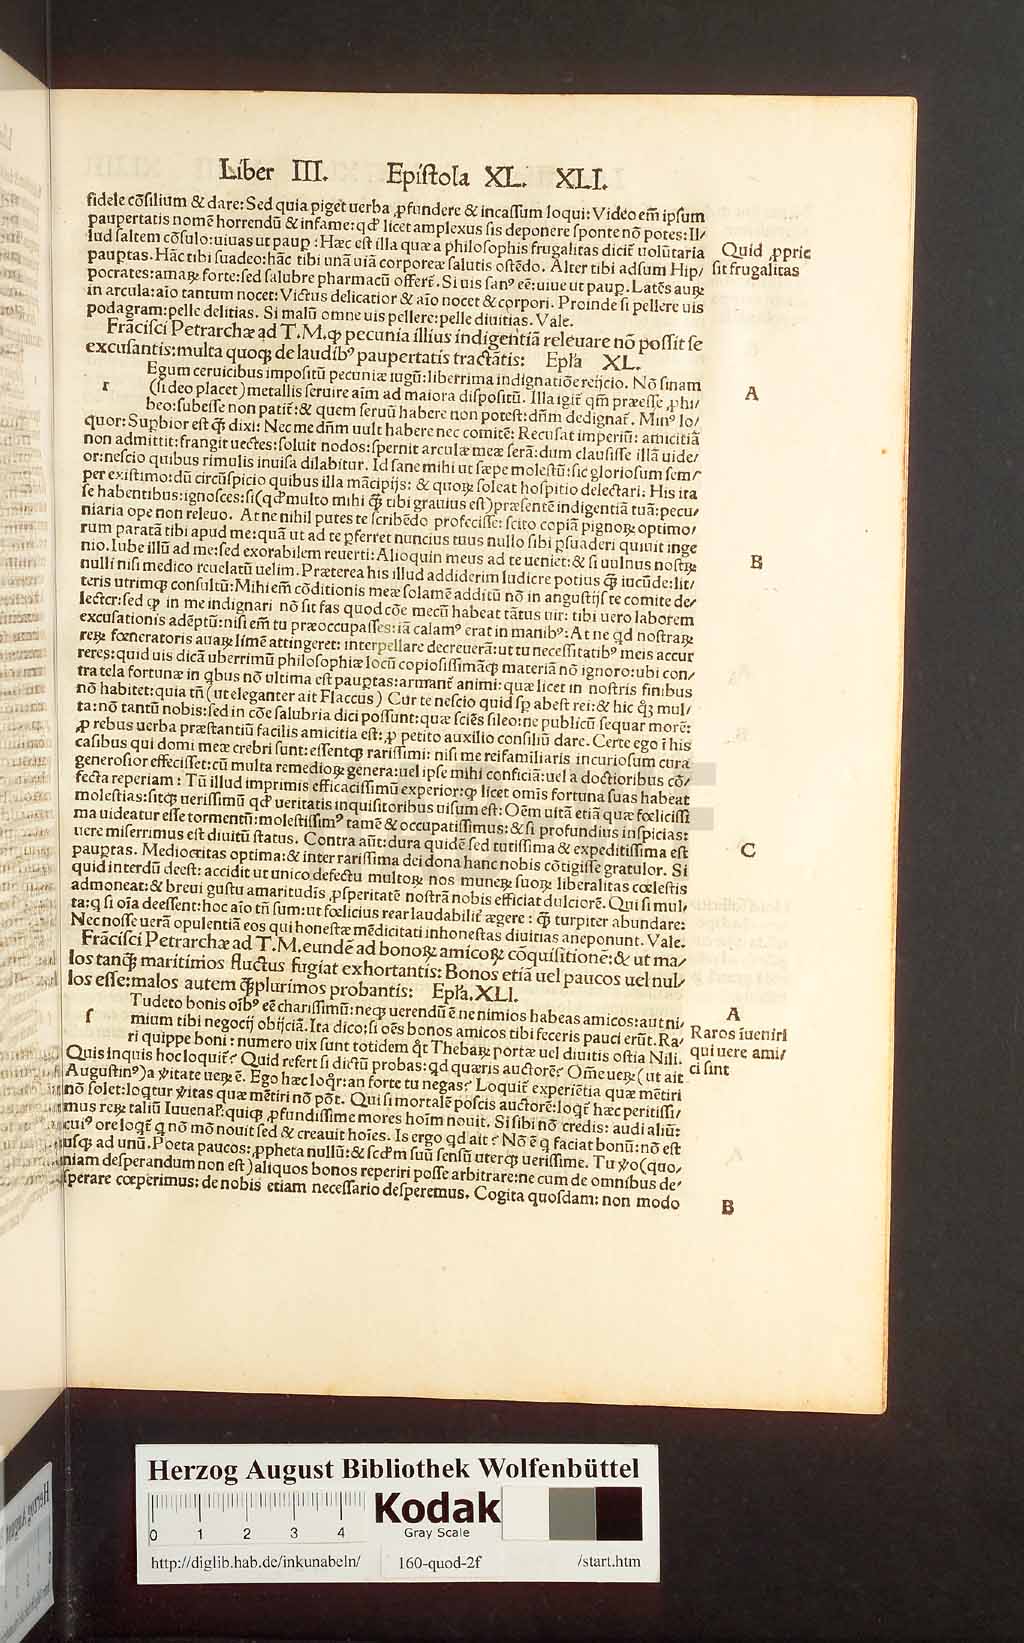 Liber III. Epistola XL. XLI.
fidele cõsilium & dare: Sed quia piget uerba ꝓfundere & incassum loqui: Video em̃ ipsum
paupertatis nomẽ horrendũ & infame: qď licet amplexus sis deponere sponte nõ potes: Il/
lud saltem cõsulo: uiuas ut paup : Hæc est illa quæ a philosophis frugalitas dicit̃ uolũtaria
pauptas. Hãc tibi suadeo: hãc tibi unã uiã corporeæ salutis ostẽdo. Alter tibi adsum Hip/
pocrates: amaꝝ forte: sed salubre pharmacũ offert̃. Si uis sanꝰ eẽ: uiue ut paup. Latẽs auꝝ
in arcula: aĩo tantum nocet: Victus delicatior & aĩo nocet & corpori. Proinde si pellere uis
podagram: pelle delitias. Si malũ omne uis pellere: pelle diuitias. Vale.
Quid ꝓprie
sit frugalitas
Frãcisci Petrarchæ ad T.M. ꝙ pecunia illius indigentiã releuare nõ possit se
excusantis: multa quoqꝫ de laudibꝰ paupertatis tractãtis: Epl̃a XL.
r
Egum ceruicibus impositũ pecuniæ iugũ: liberrima indignatiõe reijcio. Nõ sinam
(si deo placet) metallis seruire aĩm ad maiora dispositũ. Illa igit̃ qm̃ præesse ꝓhi/
beo: subesse non patit̃: & quem seruũ habere non potest: dñm dedignat̃. Minꝰ lo/
quor: Supbior est q̃ dixi: Nec me dñm uult habere nec comitẽ: Recusat imperiũ: amicitiã
non admittit: frangit uectes: soluit nodos: spernit arculæ meæ serã: dum clausisse illã uide/
or: nescio quibus rimulis inuisa dilabitur. Id sane mihi ut sæpe molestũ: sic gloriosum sem/
per existimo: dũ circũspicio quibus illa mãcipijs: & quoꝝ soleat hospitio delectari. His ita
se habentibus: ignosces: si (qď multo mihi q̃ tibi grauius est) præsentẽ indigentiã tuã: pecu/
niaria ope non releuo. At ne nihil putes te scribẽdo profecisse: scito copiã pignoꝝ optimo/
rum paratã tibi apud me: quã ut ad te pferret nuncius tuus nullo sibi psuaderi quiuit inge
nio. Iube illũ ad me: sed exorabilem reuerti: Alioquin meus ad te ueniet: & si uulnus nostꝝ
nulli nisi medico reuelatũ uelim. Præterea his illud addiderim ludicre potius q̃ iucũde: lit/
teris utrimqꝫ consultũ: Mihi em̃ cõditionis meæ solamẽ additũ nõ in angustijs te comite de/
lector: sed ꝙ in me indignari nõ sit fas quod cõe mecũ habeat tãtus uir: tibi uero laborem
excusationis adẽptũ: nisi em̃ tu præoccupasses: iã calamꝰ erat in manibꝰ: At ne qd nostraꝝ
reꝝ fœneratoris auaꝝ limẽ attingeret: interpellare decreuerã: ut tu necessitatibꝰ meis accur
reres: quid uis dicã uberrimũ philosophiæ locũ copiosissimãqꝫ materiã nõ ignoro: ubi con/
tra tela fortunæ in qbus nõ ultima est pauptas: armant̃ animi: quæ licet in nostris finibus
nõ habitet: quia tñ (ut eleganter ait Flaccus) Curte nescio quid sp abest rei: & hic qꝫ mul/
ta: nõ tantũ nobis: sed in cõe salubria dici possunt: quæ sciẽs sileo: ne publicũ sequar morẽ:
ꝓ rebus uerba præstantiũ facilis amicitia est: ꝓ petito auxilio consiliũ dare. Certe ego ĩ his
casibus qui domi meæ crebri sunt: essentqꝫ rarissimi: nisi me reifamiliaris incuriosum cura
generosior effecisset: cũ multa remedioꝝ genera: uel ipse mihi conficiã: uel a doctioribus cõ/
fecta reperiam : Tũ illud imprimis efficacissimũ experior: ꝙ licet omĩs fortuna suas habeat
molestias: sitqꝫ uerissimũ qď ueritatis inquisitoribus uisum est: Oẽm uitã etiã quæ fœlicissĩ
ma uideatur esse tormentũ: molestissimꝰ tamẽ & occupatissimus: & si profundius inspicias:
uere miserrimus est diuitũ status. Contra aũt: dura quidẽ sed tutissima & expeditissima est
pauptas. Mediocritas optima: & inter rarissima dei dona hanc nobis cõtigisse gratulor. Si
quid interdũ deest: accidit ut unico defectu multoꝝ nos muneꝝ suoꝝ liberalitas cœlestis
admoneat: & breui gustu amaritudĩs ꝓspitatẽ nostrã nobis efficiat dulciorẽ. Qui si mul/
ta: q si oĩa deessent: hoc aĩo tñ sum: ut fœlicius rear laudabilit̃ ægere : q̃ turpiter abundare:
Nec nosse uerã opulentiã eos qui honestæ mẽdicitati inhonestas diuitias aneponunt. Vale.
A
B
C
Frãcisci Petrarchæ ad T.M. eundẽ ad bonoꝝ amicoꝝ cõquisitionẽ: & ut ma/
los tanq̃ maritimos fluctus fugiat exhortantis: Bonos etiã uel paucos uel nul/
los esse: malos autem q̃plurimos probantis: Epl̃a. XLI.
s
Tudeto bonis oĩbꝰ eẽ charissimũ: neqꝫ uerendũ ẽ ne nimios habeas amicos: aut ni/
mium tibi negocij obijciã. Ita dico: si oẽs bonos amicos tibi feceris pauci erũt. Ra/
ri quippe boni : numero uix sunt totidem q̃t Thebaꝝ portæ uel diuitis ostia Nili.
Quis inquis hoc loquit̃? Quid refert si dictũ probas: qd quæris auctorẽ? Om̃e ueꝝ (ut ait
Augustinꝰ) a ṽitate ueꝝ ẽ. Ego hæc loq̃r: an forte tu negas? Loquit̃ experiẽtia quæ mẽtiri
nõ solet: loqtur ṽitas quæ mẽtiri nõ põt. Qui si mortalẽ poscis auctorẽ: loqt̃ hæc peritissi/
mus reꝝ taliũ Iuuenal̃: quiqꝫ ꝓfundissime mores hoĩm nouit. Si sibi nõ credis: audi aliũ:
cuiꝰ ore loqt̃ q nõ mõ nouit sed & creauit hoĩes. Is ergo qd ait? Nõ ẽ q faciat bonũ: nõ est
usqꝫ ad unũ. Poeta paucos: ꝓpheta nullũ: & secďm suũ sensũ uterqꝫ uerissime. Tu ṽo (quo/
niam desperandum non est) aliquos bonos reperiri posse arbitrare: ne cum de omnibus de/
sperare cœperimus: de nobis etiam necessario desperemus. Cogita quosdam: non modo
A
Raros ĩueniri
qui uere ami/
ci sint
B
Herzog August Bibliothek Wolfenbüttel
0 1 2 3 4
Kodak
Gray Scale
http://diglib.hab.de/inkunabeln/ 160-quod-2f /start.htm